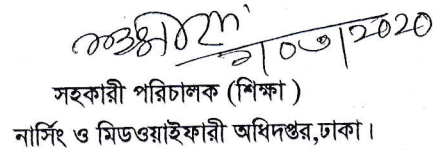 সহকারী পরিচালক (শিক্ষা )
নার্সিং ও মিডওয়াইফারী অধিদপ্তর,ঢাকা।